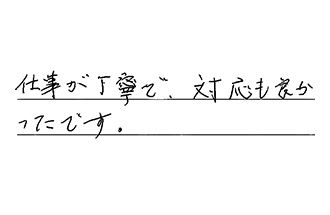 仕事が丁寧で、対応も良か
ったです。